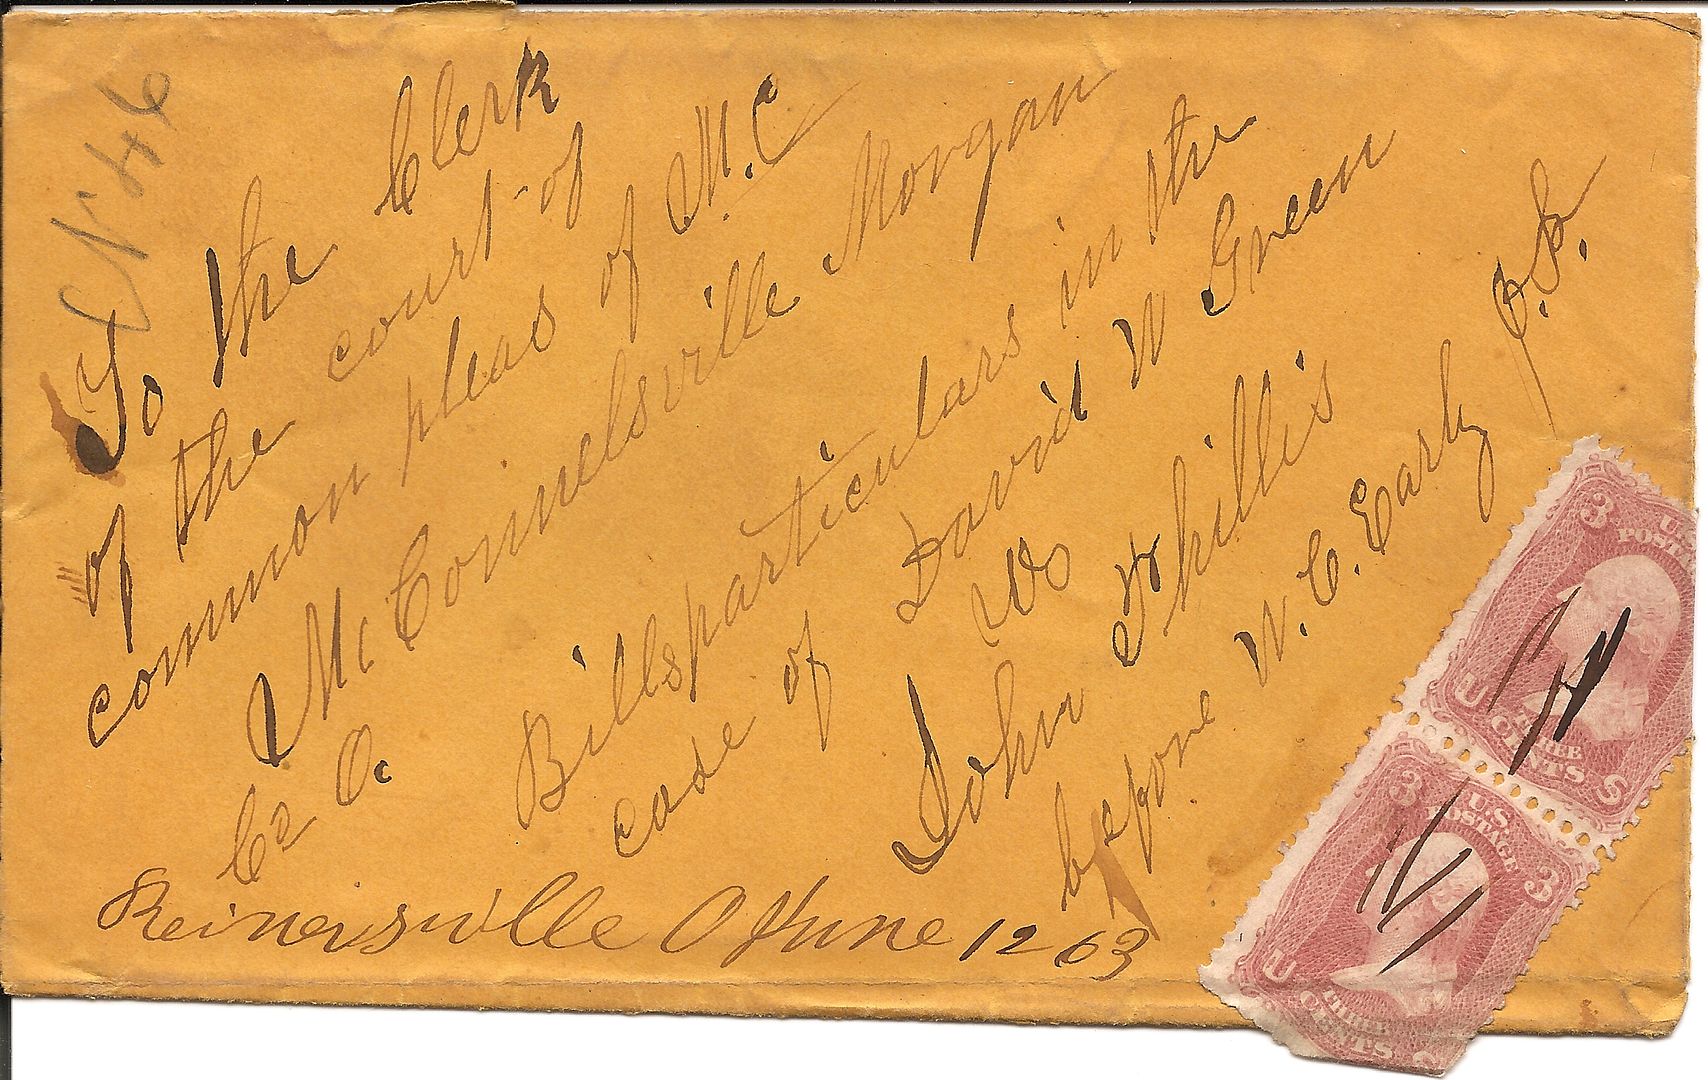 To the Clerk
of the court of
common pleas of M.C
McConnelsville Morgan
Co O.
Bills particulars in the
case of David W Green
vs
John Phillis
before W. C. Early J. P.
Reinersville O June 12 63
3 U.S. POSTAGE
U THREE CENTS S
3 U.S. POSTAGE 3
U THREE CENTS S